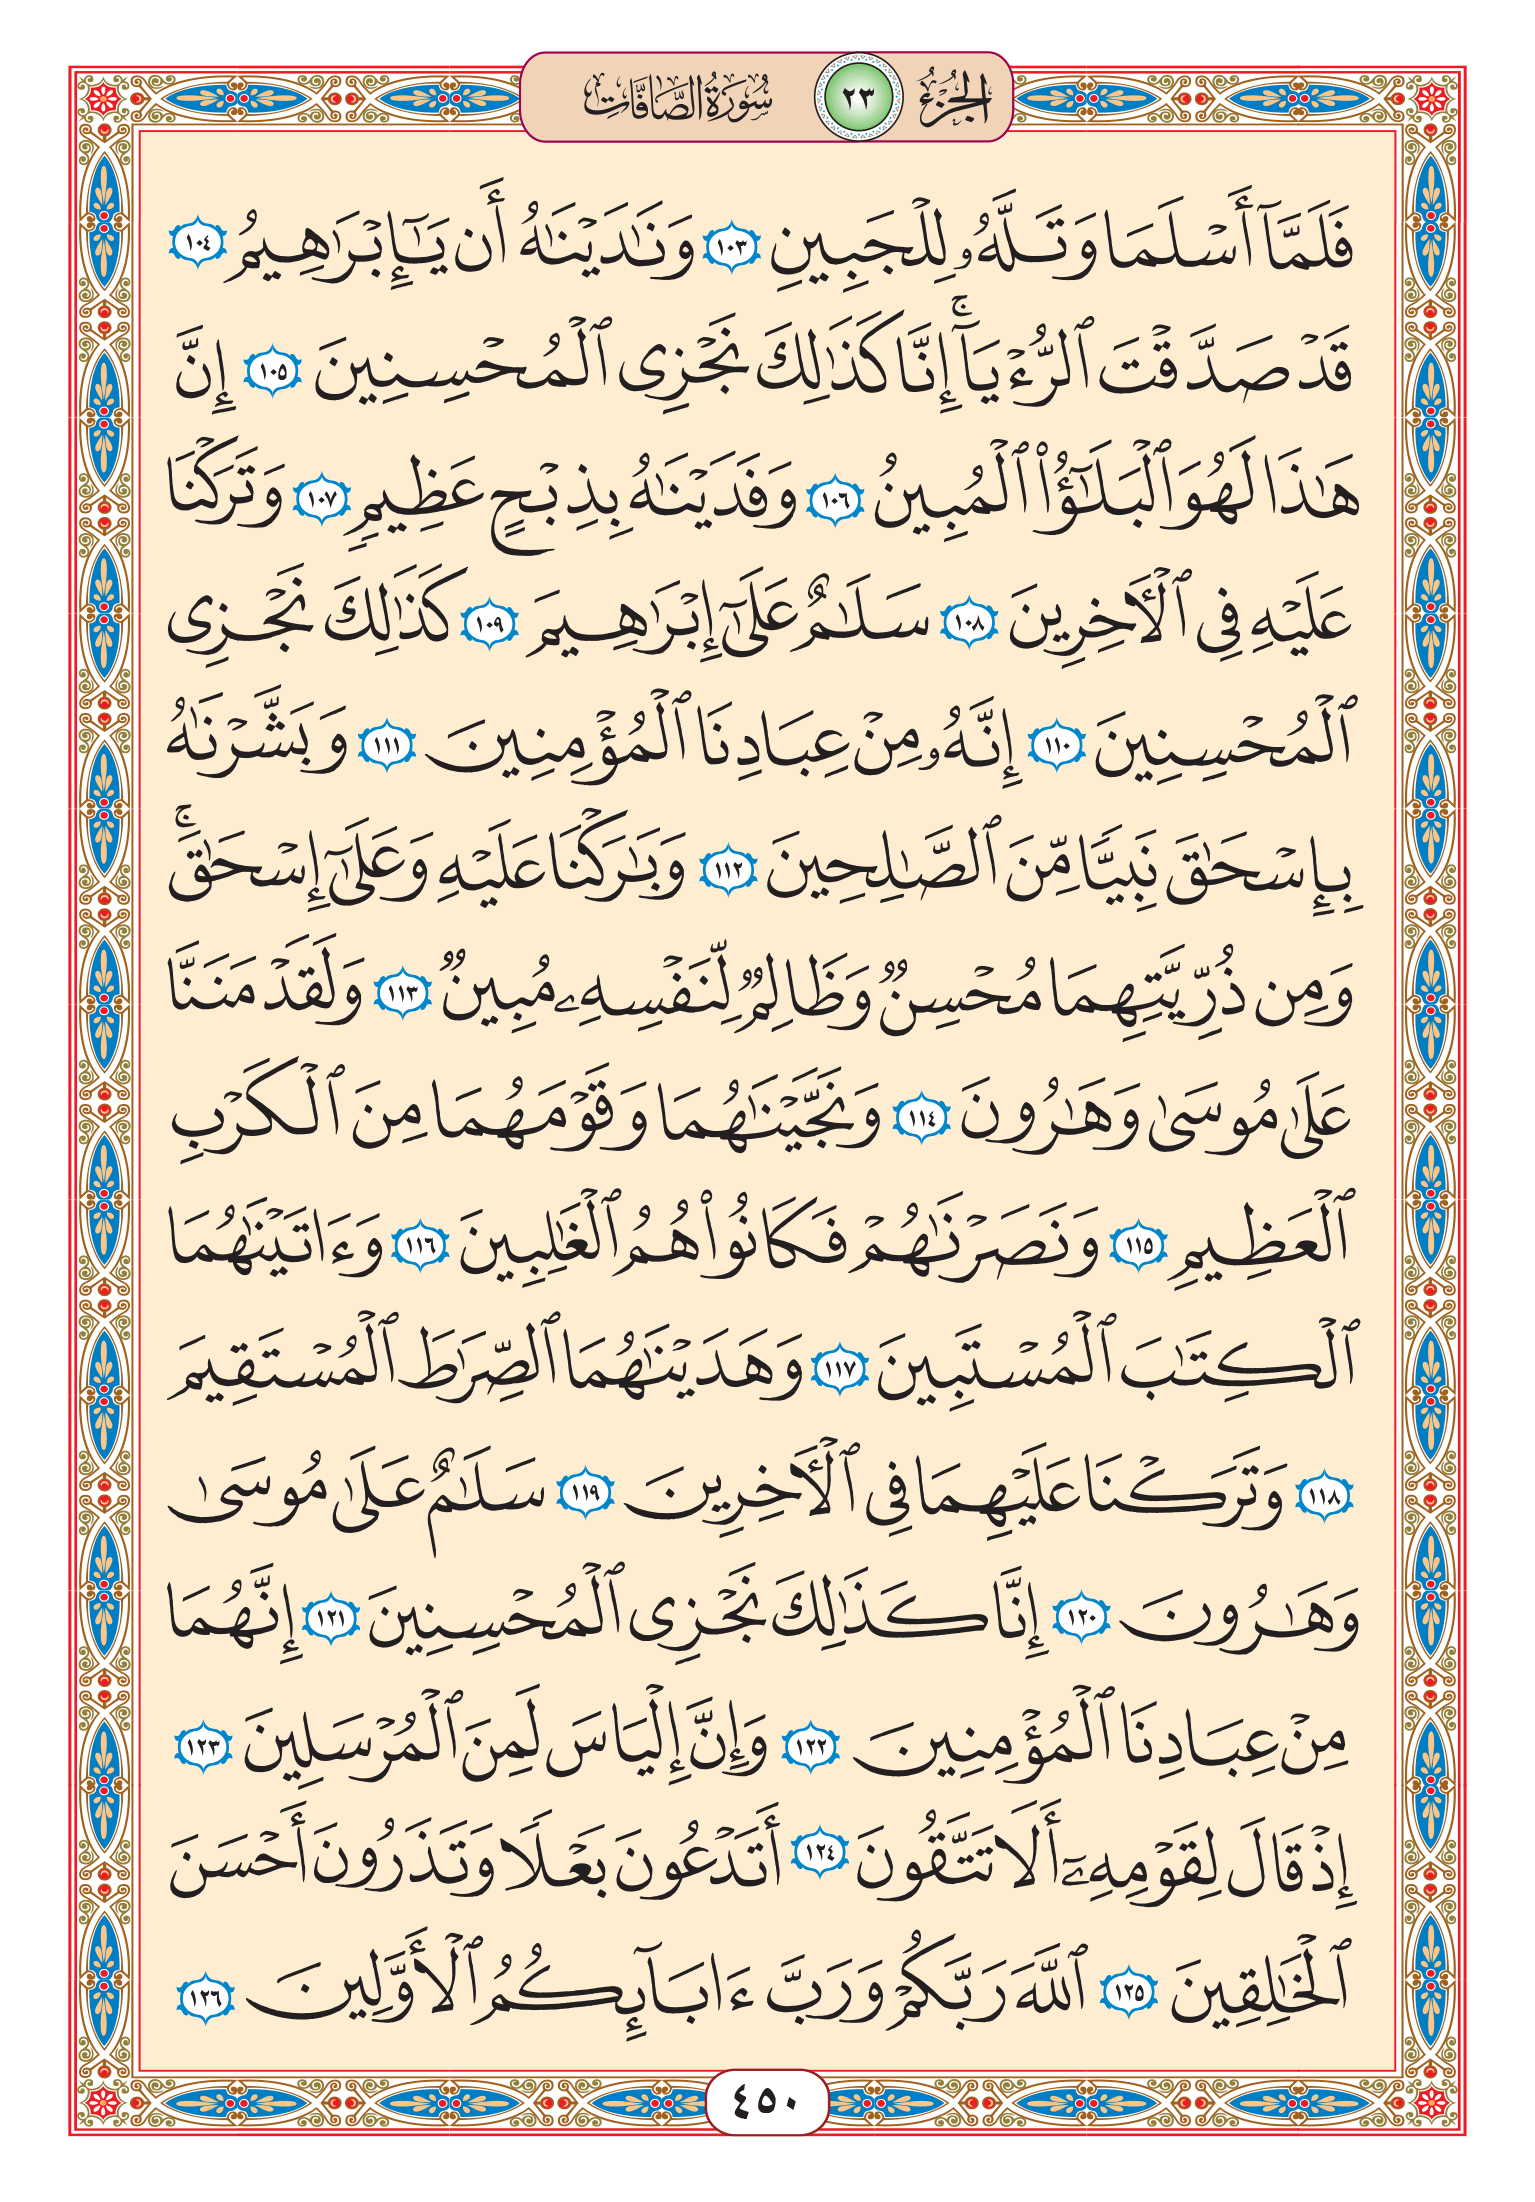 الجُزْءُ ٢٣ سُورَةُ الصَّافَّاتِ
فَلَمَّآ أَسْلَمَا وَتَلَّهُۥ لِلْجَبِينِ ١٠٣ وَنَٰدَيْنَٰهُ أَن يَٰٓإِبْرَٰهِيمُ ١٠٤
قَدْ صَدَّقْتَ ٱلرُّءْيَآ ۚ إِنَّا كَذَٰلِكَ نَجْزِى ٱلْمُحْسِنِينَ ١٠٥ إِنَّ
هَٰذَا لَهُوَ ٱلْبَلَٰٓؤُا۟ ٱلْمُبِينُ ١٠٦ وَفَدَيْنَٰهُ بِذِبْحٍ عَظِيمٍ ١٠٧ وَتَرَكْنَا
عَلَيْهِ فِى ٱلْأَخِرِينَ ١٠٨ سَلَٰمٌ عَلَىٰٓ إِبْرَٰهِيمَ ١٠٩ كَذَٰلِكَ نَجْزِى
ٱلْمُحْسِنِينَ ١١٠ إِنَّهُۥ مِنْ عِبَادِنَا ٱلْمُؤْمِنِينَ ١١١ وَبَشَّرْنَٰهُ
بِإِسْحَٰقَ نَبِيًّا مِّنَ ٱلصَّٰلِحِينَ ١١٢ وَبَٰرَكْنَا عَلَيْهِ وَعَلَىٰٓ إِسْحَٰقَ ۚ
وَمِن ذُرِّيَّتِهِمَا مُحْسِنٌ وَظَالِمٌ لِّنَفْسِهِۦ مُبِينٌ ١١٣ وَلَقَدْ مَنَنَّا
عَلَىٰ مُوسَىٰ وَهَٰرُونَ ١١٤ وَنَجَّيْنَٰهُمَا وَقَوْمَهُمَا مِنَ ٱلْكَرْبِ
ٱلْعَظِيمِ ١١٥ وَنَصَرْنَٰهُمْ فَكَانُوا۟ هُمُ ٱلْغَٰلِبِينَ ١١٦ وَءَاتَيْنَٰهُمَا
ٱلْكِتَٰبَ ٱلْمُسْتَبِينَ ١١٧ وَهَدَيْنَٰهُمَا ٱلصِّرَٰطَ ٱلْمُسْتَقِيمَ
١١٨ وَتَرَكْنَا عَلَيْهِمَا فِى ٱلْأَخِرِينَ ١١٩ سَلَٰمٌ عَلَىٰ مُوسَىٰ
وَهَٰرُونَ ١٢٠ إِنَّا كَذَٰلِكَ نَجْزِى ٱلْمُحْسِنِينَ ١٢١ إِنَّهُمَا
مِنْ عِبَادِنَا ٱلْمُؤْمِنِينَ ١٢٢ وَإِنَّ إِلْيَاسَ لَمِنَ ٱلْمُرْسَلِينَ ١٢٣
إِذْ قَالَ لِقَوْمِهِۦٓ أَلَا تَتَّقُونَ ١٢٤ أَتَدْعُونَ بَعْلًا وَتَذَرُونَ أَحْسَنَ
ٱلْخَٰلِقِينَ ١٢٥ ٱللَّهَ رَبَّكُمْ وَرَبَّ ءَابَآئِكُمُ ٱلْأَوَّلِينَ ١٢٦
٤٥٠